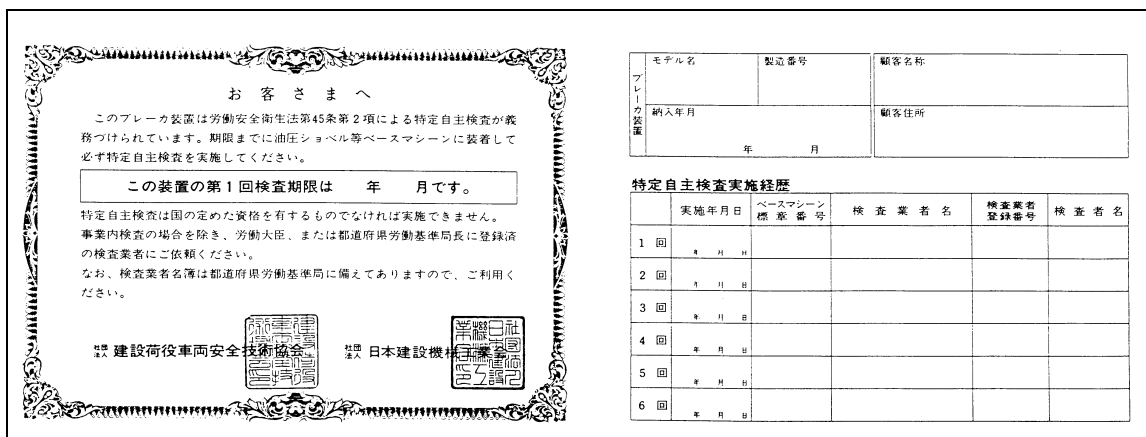 お客さまへ
このブレーカ装置は労働安全衛生法第45条第2項による特定自主検査が義
務づけられています。期限までに油圧ショベル等ベースマシーンに装着して
必ず特定自主検査を実施してください。
この装置の第1回検査期限は　　年　　月です。
特定自主検査は国の定めた資格を有するものでなければ実施できません。
事業内検査の場合を除き、労働大臣、または都道府県労働基準局長に登録済
の検査業者にご依頼ください。
なお、検査業者名簿は都道府県労働基準局に備えてありますので、ご利用く
ださい。
社団法人 建設荷役車両安全技術協会　社団法人 日本建設機械工業会
ブレーカ装置
モデル名　製造番号　顧客名称
納入年月　顧客住所
年　月
特定自主検査実施経歴
実施年月日　ベースマシーン標章番号　検査業者名　検査業者登録番号　検査者名
1回　年　月　日
2回　年　月　日
3回　年　月　日
4回　年　月　日
5回　年　月　日
6回　年　月　日